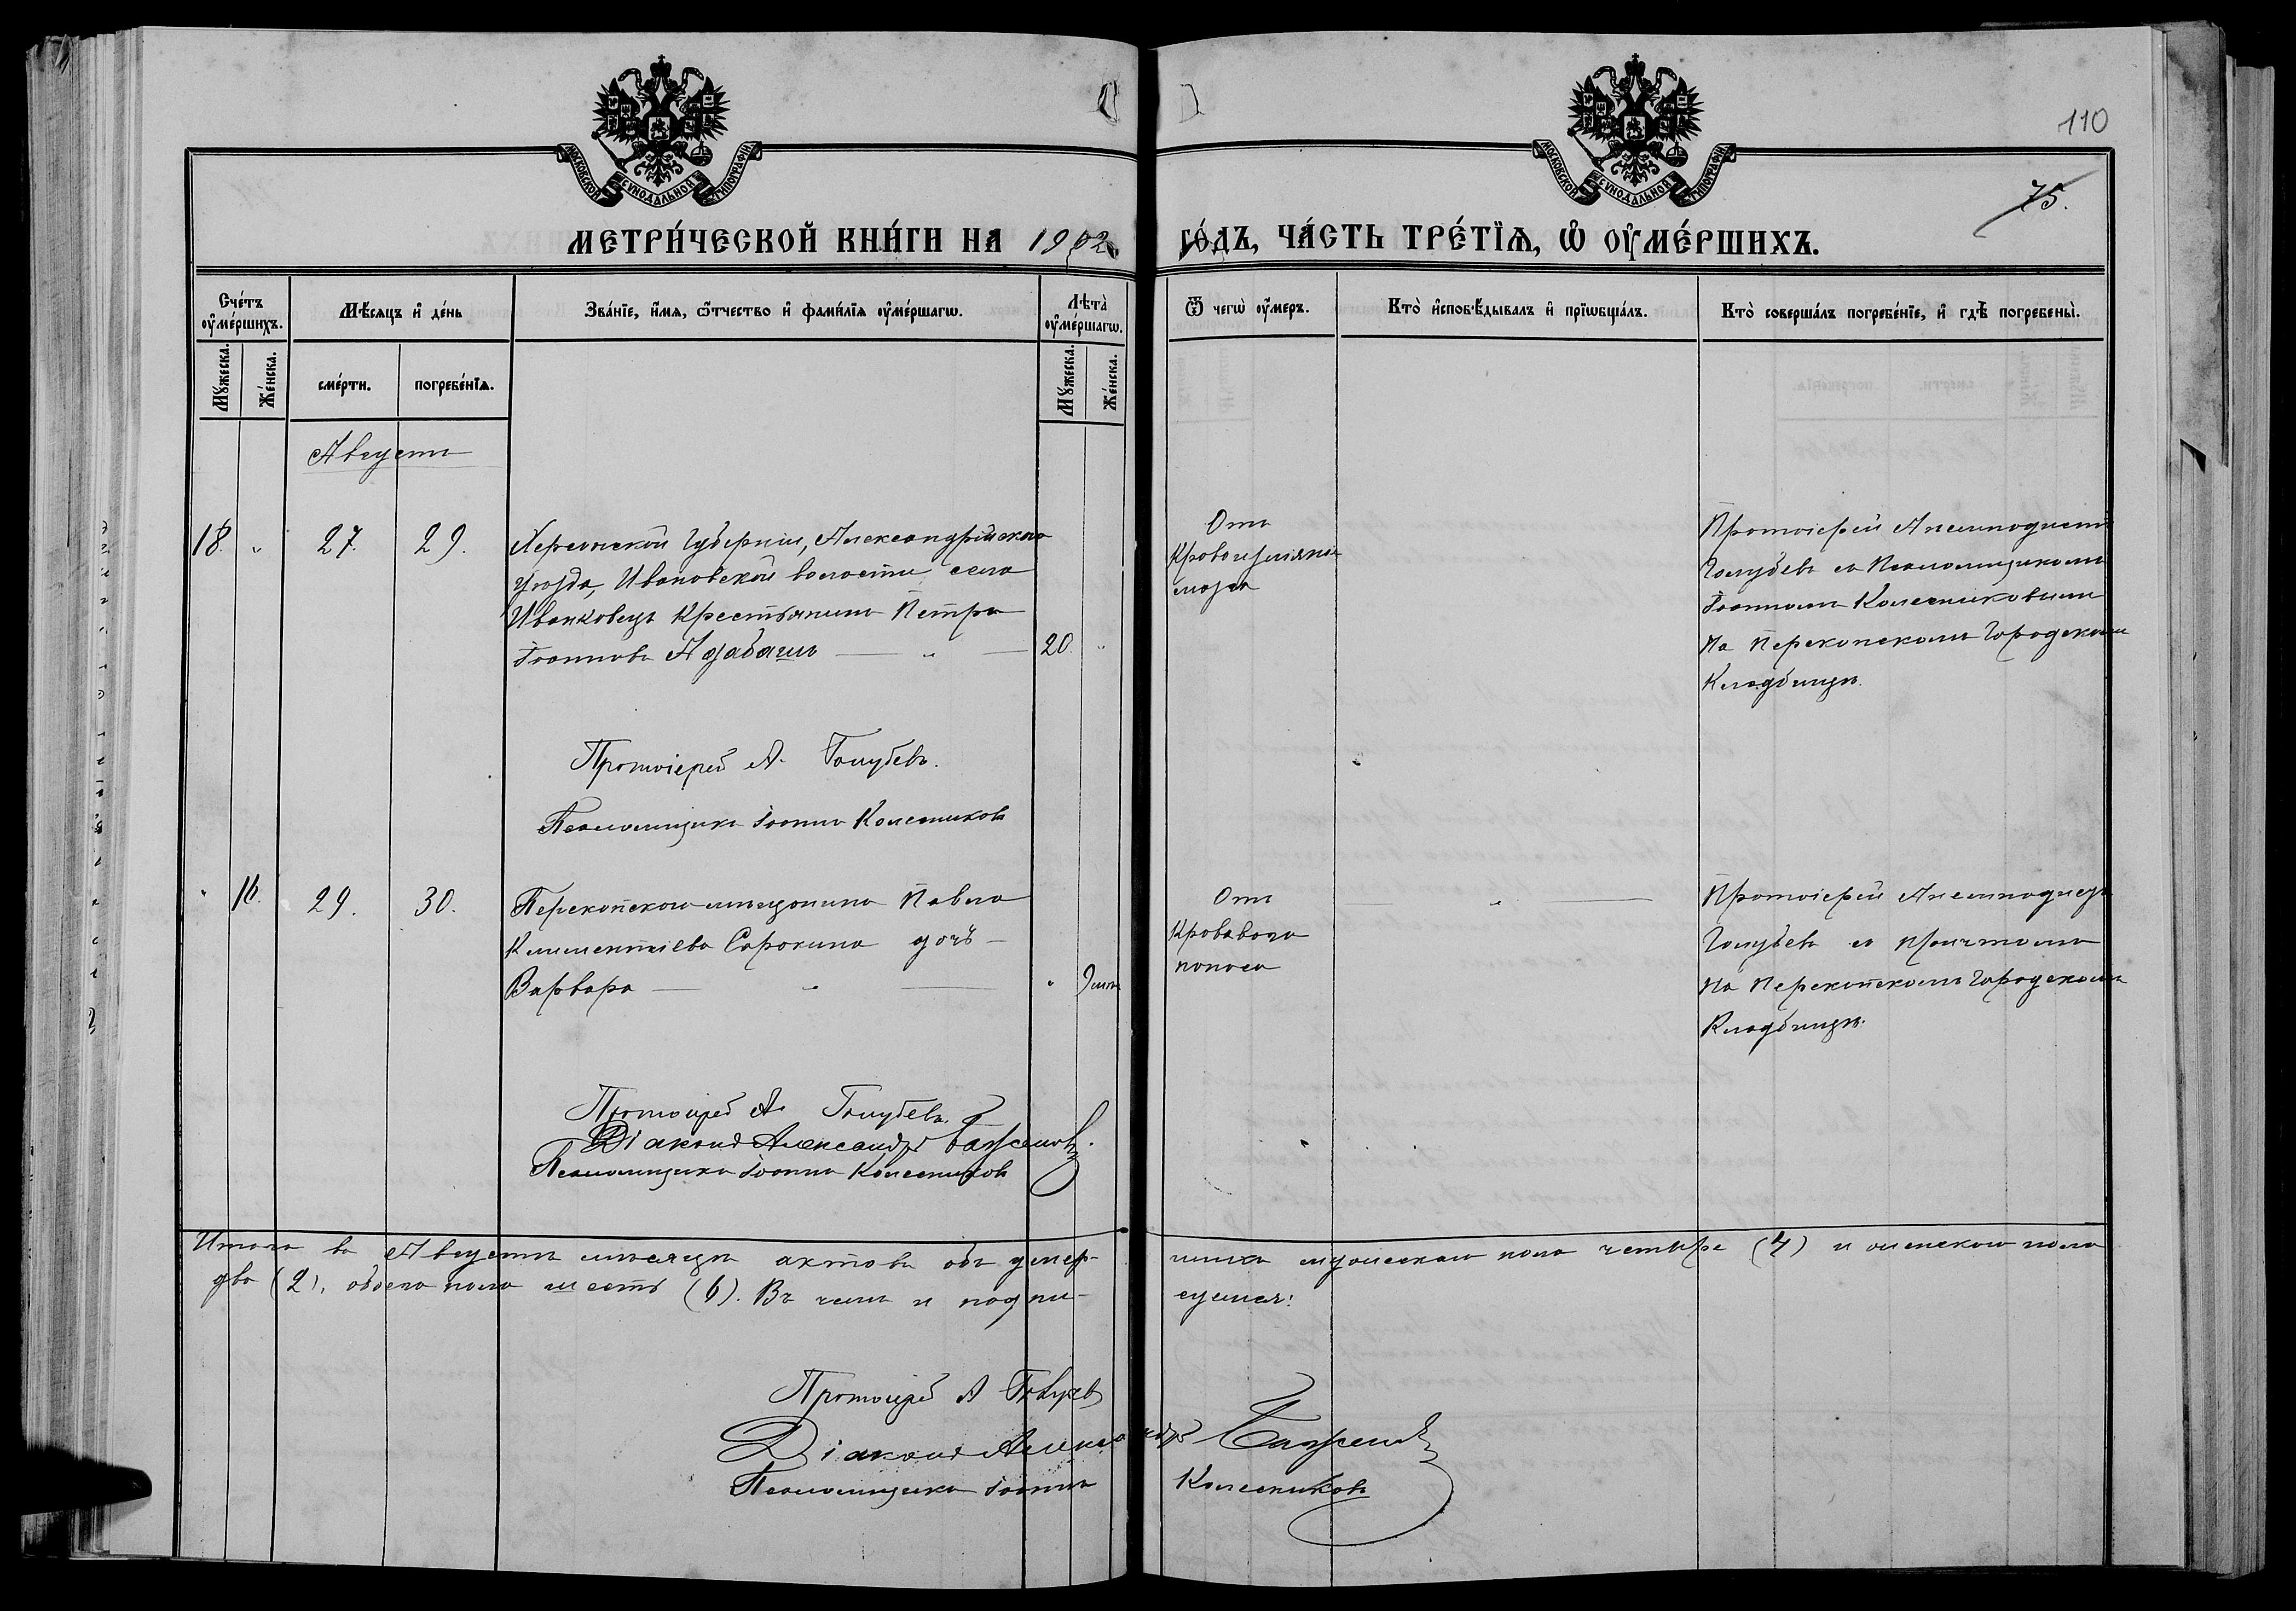 110
75.
МОСКОВСКОЙ СѴНОДАЛЬНОЙ ТИПОГРАФІИ
МОСКОВСКОЙ СѴНОДАЛЬНОЙ ТИПОГРАФІИ
МЕТРИ́ЧЕСКОЙ КНИ́ГИ НА 1902 го́дъ, ЧА́СТЬ ТРЕ́ТЇѦ, Ѡ҆ ОУ҆МЕ́РШИХЪ.
Сче́тъ оу҆ме́ршихъ.
Мѣ́сяцъ и҆ де́нь
Зва́нїе, и҆́мя, ѻ҆́тчество и҆ фами́лїя оу҆ме́ршагѡ.
Лѣта̀ оу҆ме́ршагѡ.
Ѿ чегѡ̀ оу҆́меръ.
Кто̀ и҆сповѣ́дывалъ и҆ прїѡбща́лъ.
Кто̀ соверша́лъ погребе́нїе, и҆ гдѣ̀ погребены̀.
Мꙋ́жеска.
Же́нска.
сме́рти.
погребе́нїѧ.
Мꙋ́жеска.
Же́нска.
Августъ
18. " 27. 29.
Херсонской Губерніи, Александрійскаго
уѣзда, Ивановской волости, села
Иванковецъ Крестьянинъ Петръ
Іоанновъ Адабашъ — " — 20. "
Отъ
Кровоизліянія
мозга
Протоіерей Анемподистъ
Голубевъ съ Псаломщикомъ
Іоанномъ Колесниковымъ
На Перекопскомъ Городскомъ
Кладбищѣ.
Протоіерей А. Голубевъ.
Псаломщикъ Іоаннъ Колесниковъ
" 16. 29. 30.
Перекопскаго мѣщанина Павла
Климентіева Сорокина дочь —
Варвара — " — "
Отъ
Кроваваго
поноса
— " —
Протоіерей Анемподистъ
Голубевъ съ причтомъ
На Перекопскомъ Городскомъ
Кладбищѣ.
Протоіерей А. Голубевъ.
Діаконъ Александръ Баженовъ.
Псаломщикъ Іоаннъ Колесниковъ
Итого въ Августѣ мѣсяцѣ актовъ объ умер- шихъ мужескаго пола четыре (4) и женскаго пола
два (2), обоего пола шесть (6). Въ чемъ и подпи- суемся:
Протоіерей А Голубевъ
Діаконъ Александръ Баженовъ
Псаломщикъ Іоаннъ Колесниковъ